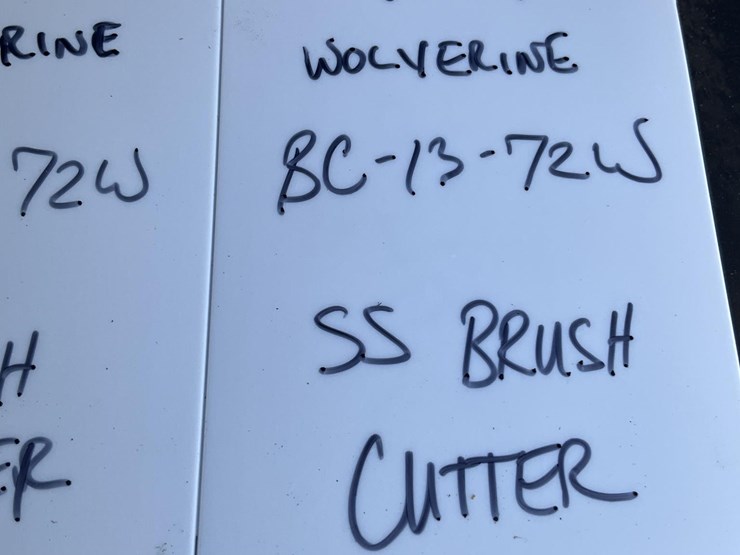 RINE
72W
H
ER
WOLVERINE
BC-13-72W
SS BRUSH
CUTTER